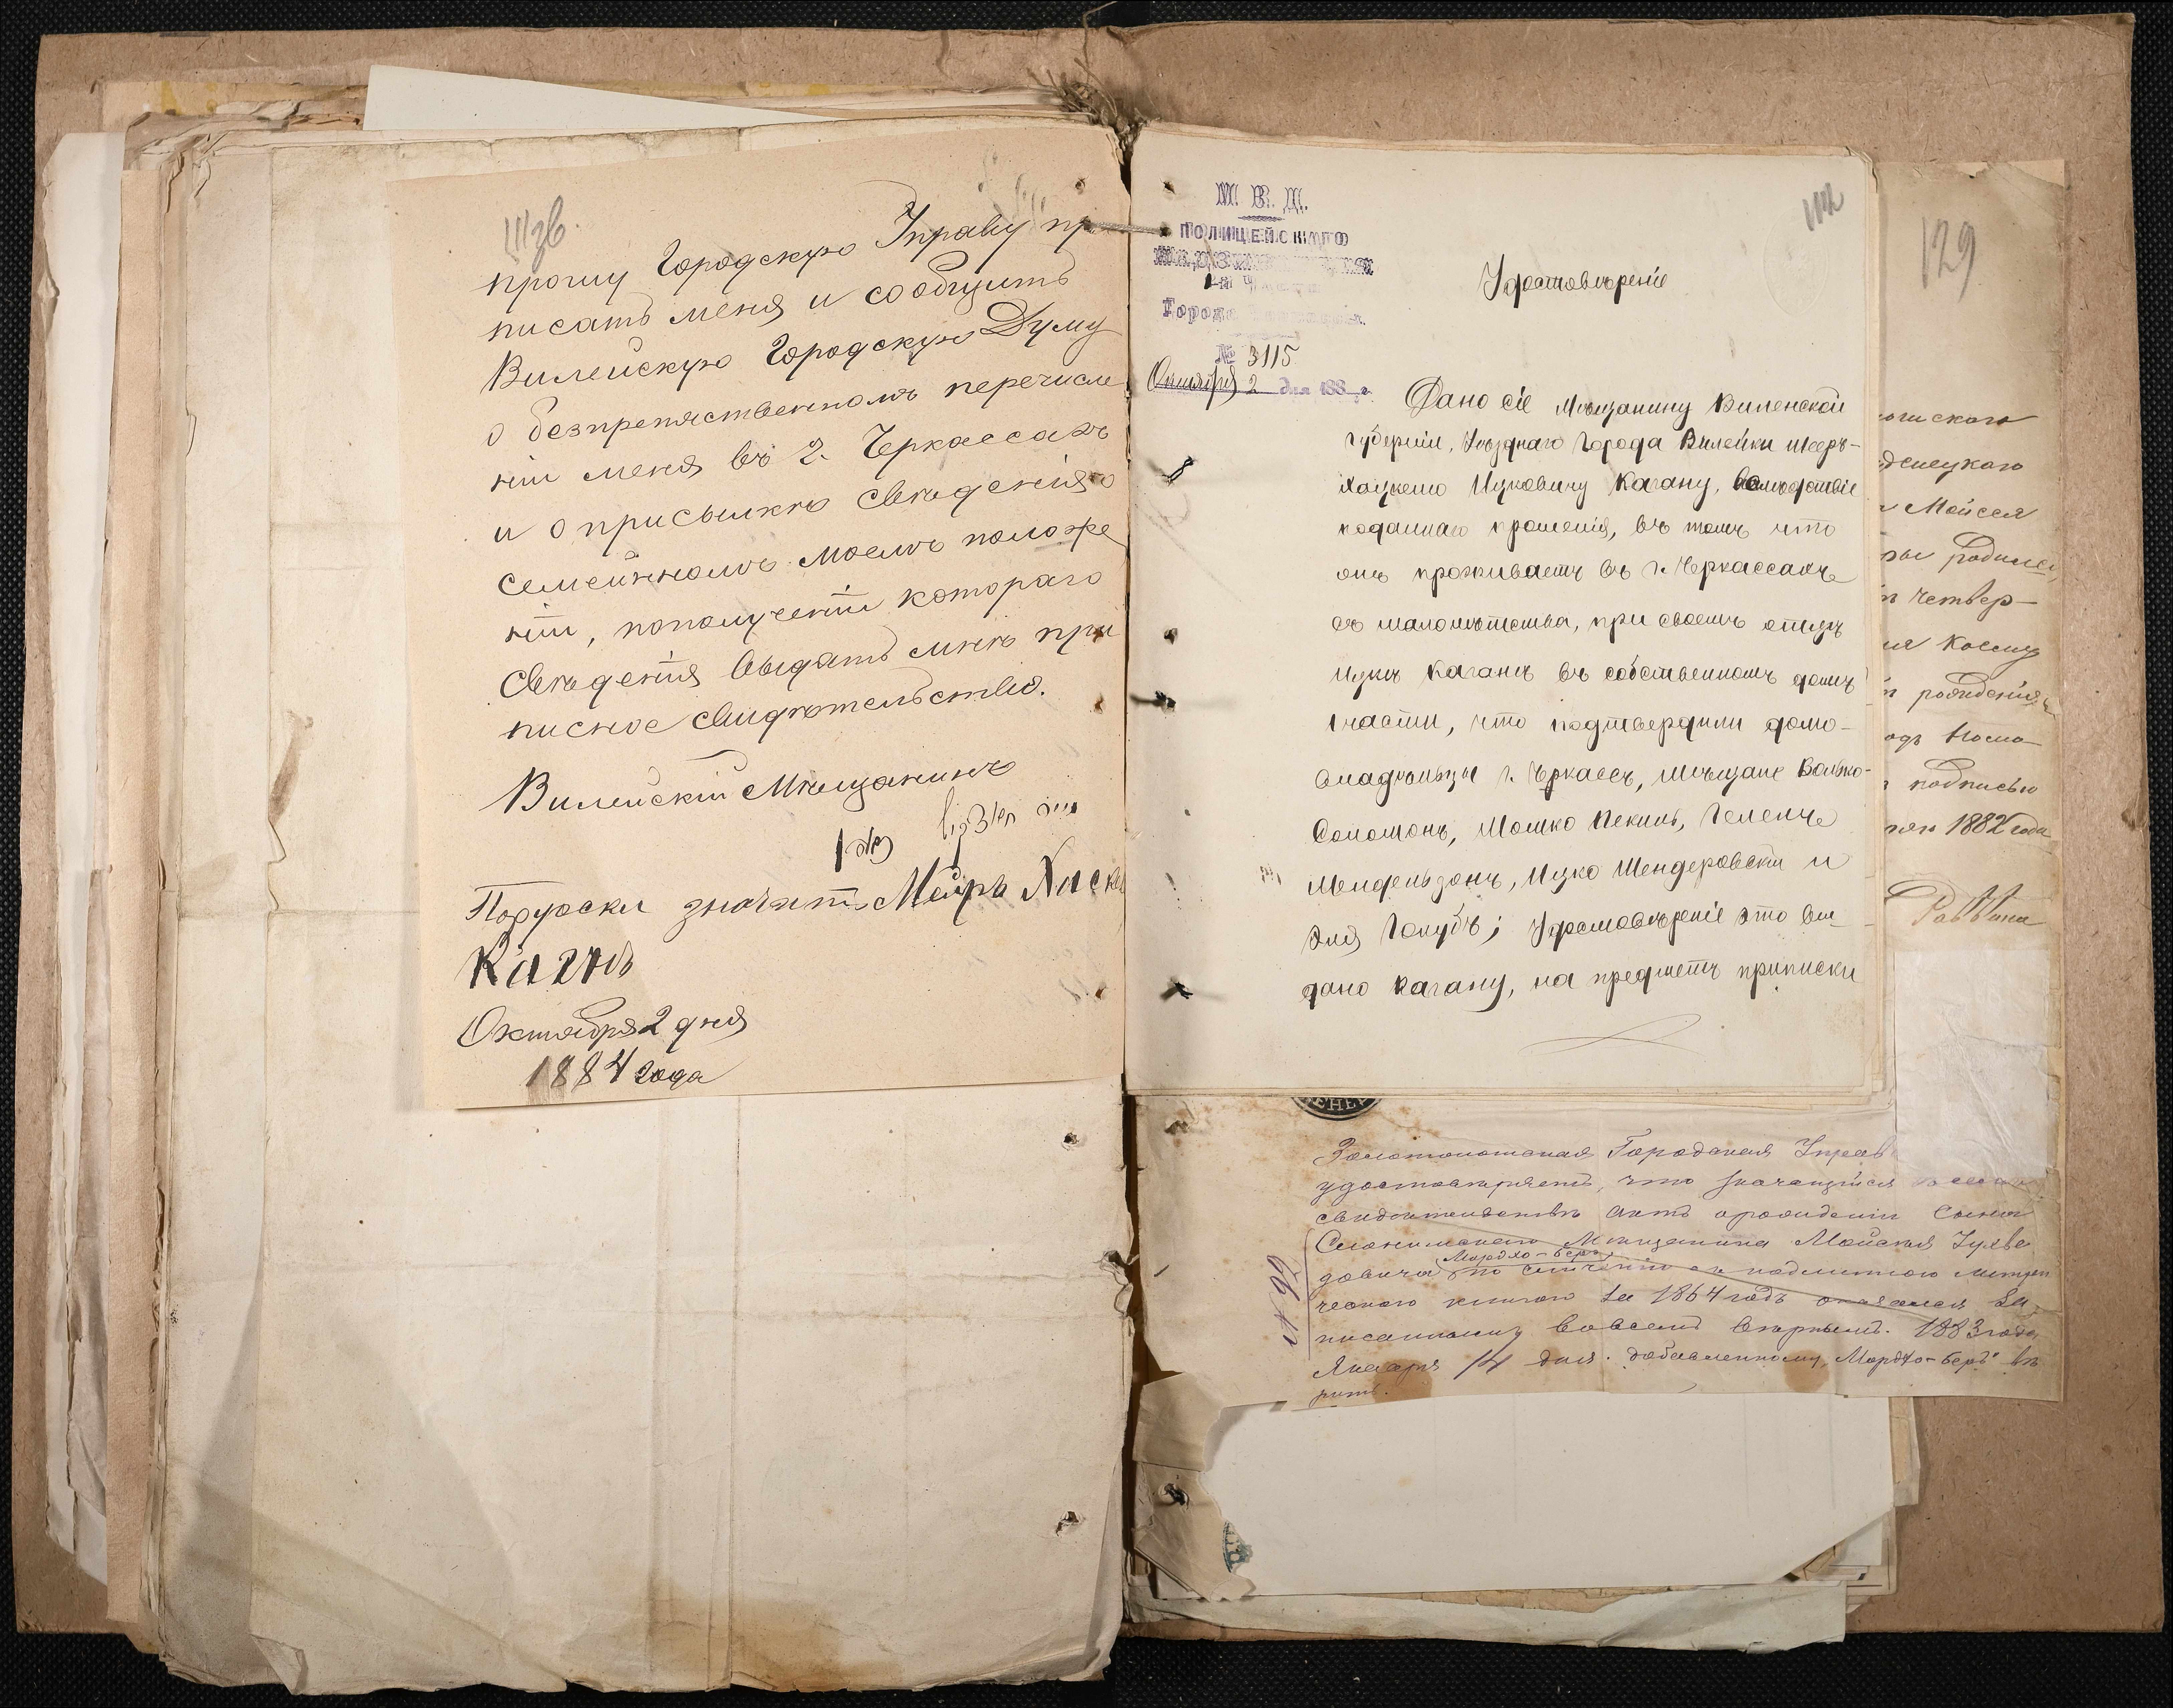 прошу Городскую Управу при
писать меня и сообщить
Вилейскую Городскую Думу
о безпрепятственномъ перечисле
ніи меня въ г. Черкассахъ
и о присылкѣ свѣденія о
семейнномъ моемъ положе
ніи, пополученіи котораго
свѣденія выдать мнѣ при
писное свидѣтельство.
Вилейскій Мѣщанинъ
Порусски значитъ Меиръ Хиск
Каганъ
Октября 2 дня
1884 года
М. В. Д.
ПОЛИЦЕЙСКАГО
Города
№ 3115
Октября 2 дня 188 г.
Удостовѣреніе
Дано сіе Мѣщанину Виленской
губерніи, Уѣзднаго города Вилейки Мееръ-
Хацкелю Ицковичу Кагану, вслѣдствіе
поданнаго прошенія, въ томъ что
онъ проживаетъ въ г. Черкассахъ
съ малолѣтства, при своемъ отцѣ
Ицкѣ Каганѣ въ собственномъ домѣ
1 части, что подтвердили домо-
владѣльцы г. Черкассъ, мѣщане Волько-
Соломонъ, Мошко Пекинъ,
Мендельзонъ, Ицко Шендеровскій и
Эля Голубъ; Удостовѣреніе это вы-
дано Кагану, на предметъ приписки
129
Моисея
родился
четвер-
рожденія
подписью
1882 года
Раввина
Золотоношская Городская Управ
удостовѣряетъ, что значащійся
свидетельствѣ актъ о рожденіи сына
Слонимскаго Мѣщанина Мойсея
Мордхо-Беръ
довича по сличенію съ подлинною метри
ческою книгою за 1864 годъ оказался за
писаннымъ вовсемъ вѣрнымъ. 1883 года
Января 14 дня. добавленному "Мордхо-Беръ" вѣ
рить.